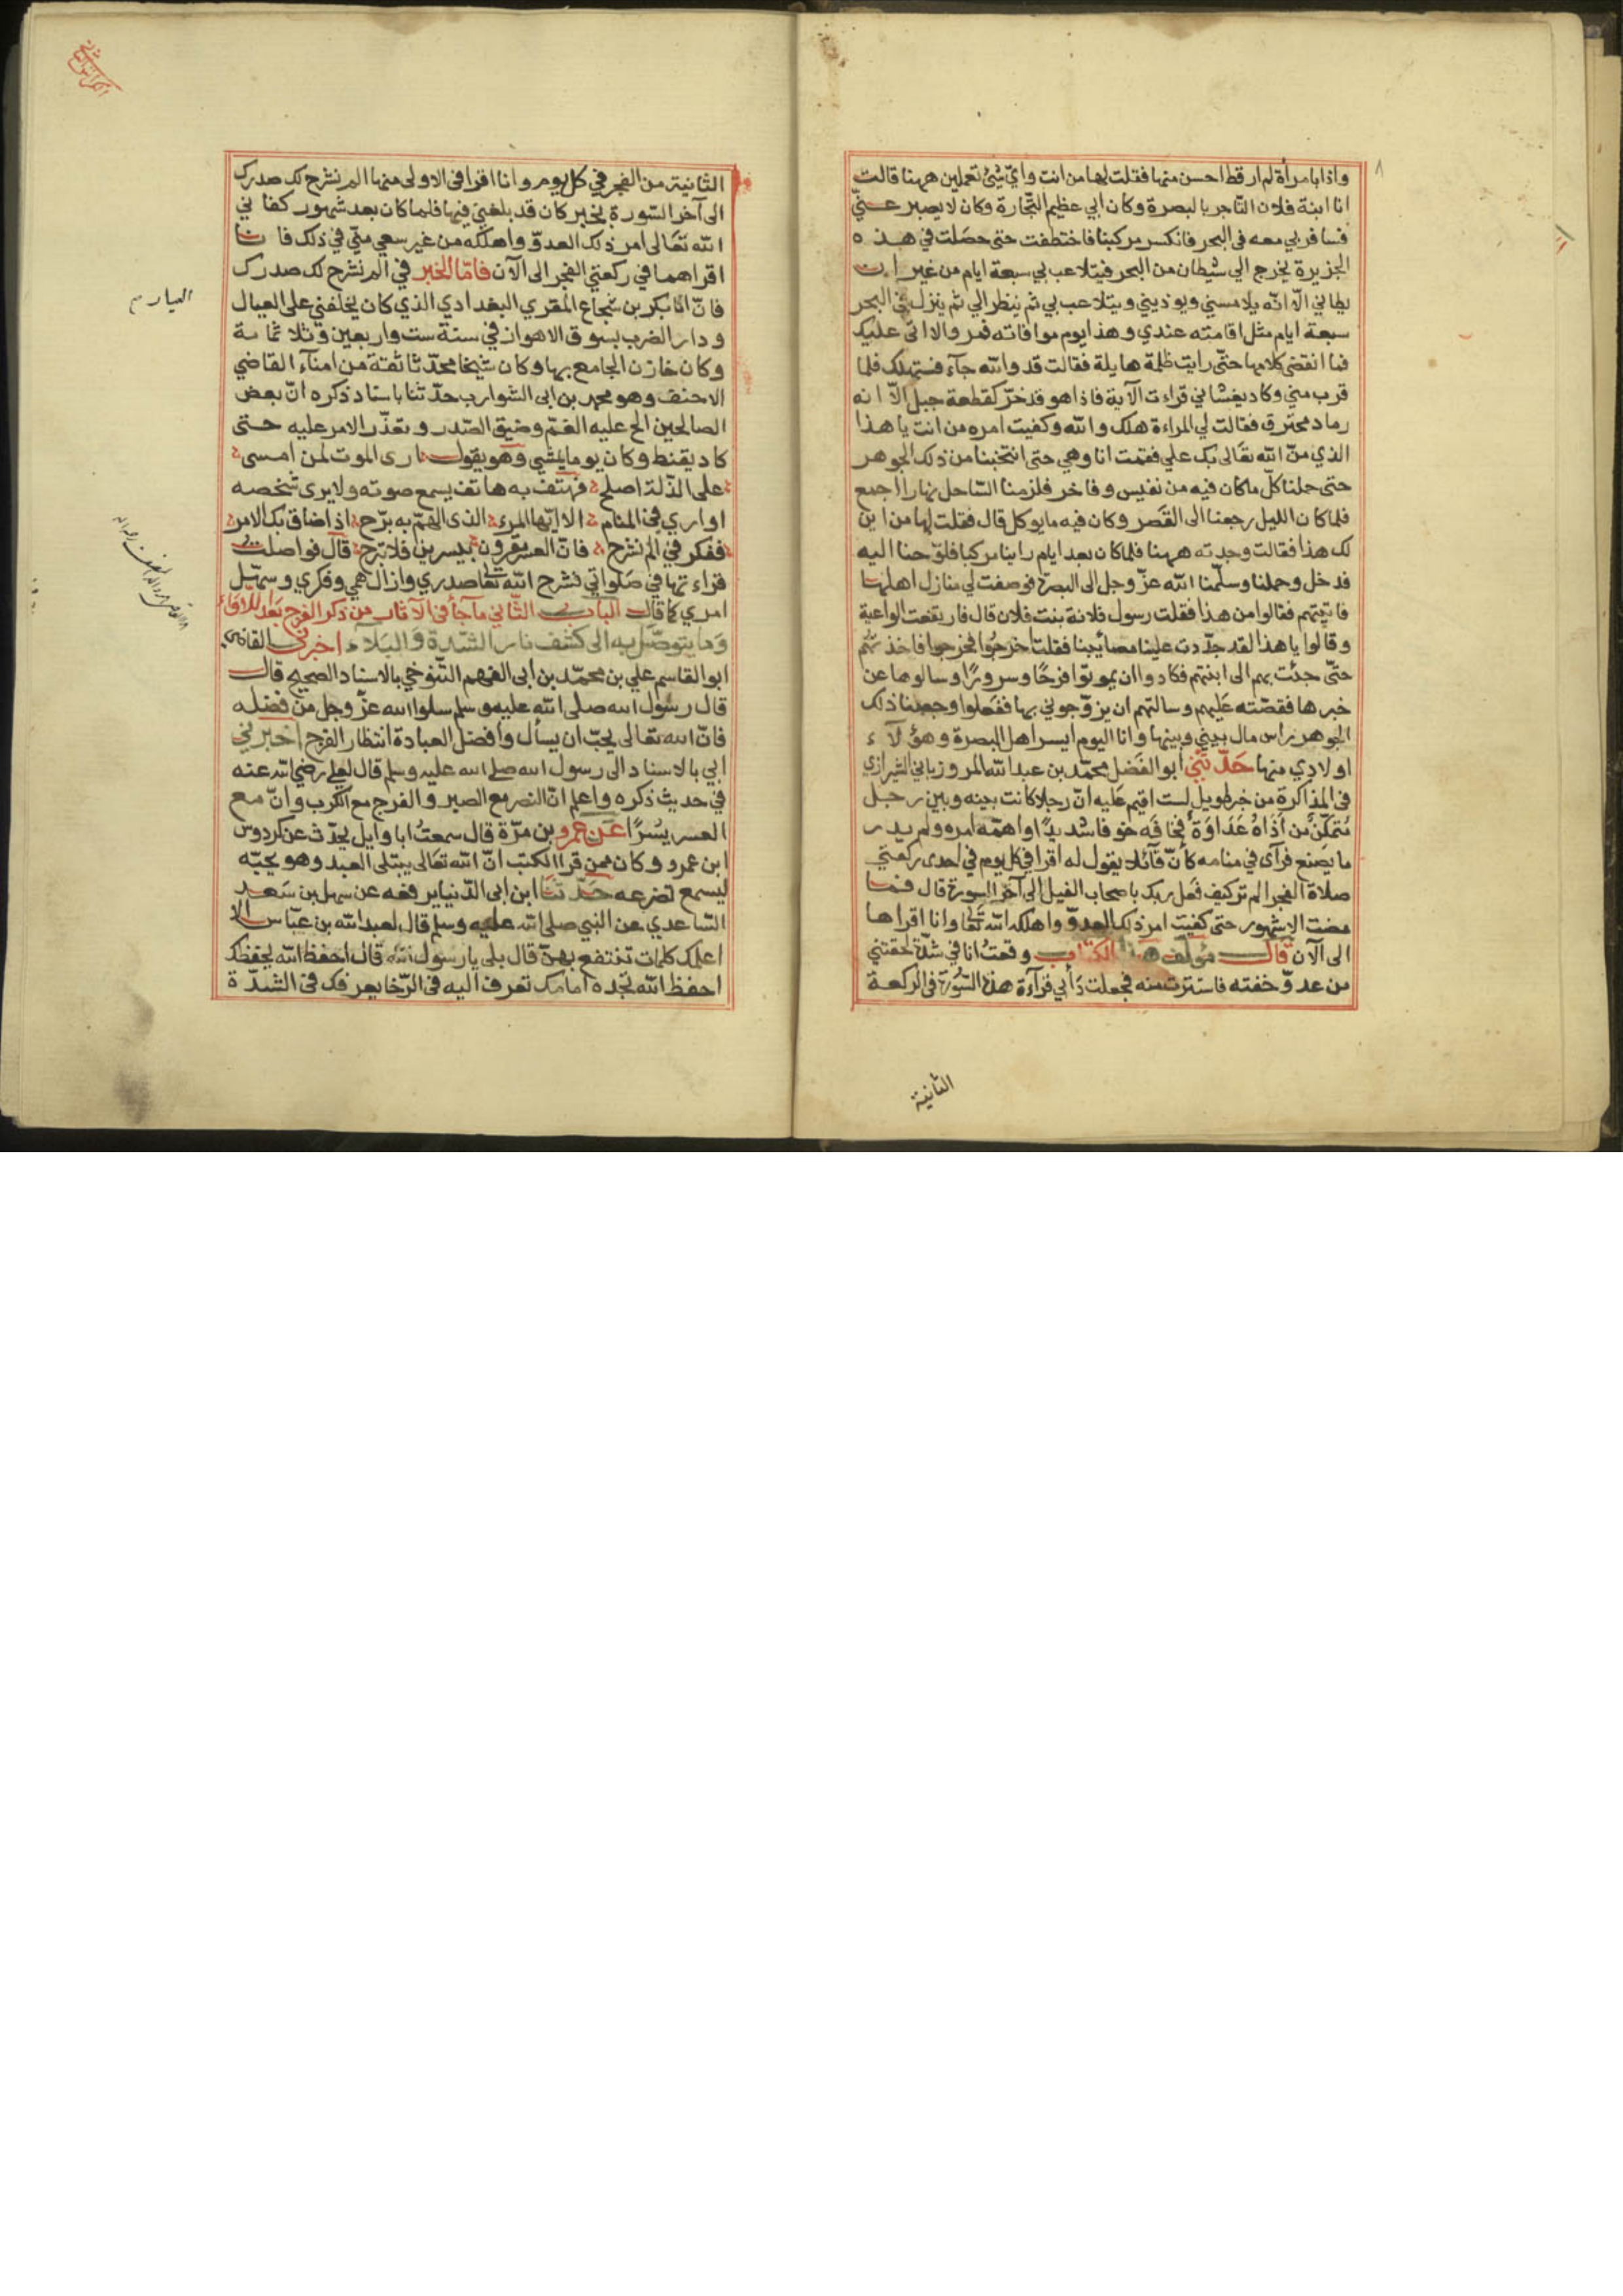 واذا بامرأة لم ار قط احسن منها فقلت لها من انت واي شئ تعملين ههنا قالت
انا ابنة فلان التاجر بالبصرة وكان ابي عظيم التجارة وكان لا يصبر عني
فسافر بي معه في البحر فانكسر مركبنا فاختطفت حتى حصلت في هذه
الجزيرة يخرج الي شيطان من البحر فيتلاعب بي سبعة ايام من غير ان
يطاني الا انه يلامسني ويوذيني ويتلاعب بي ثم ينظر الي ثم ينزل في البحر
سبعة ايام مثل اقامته عندي وهذا يوم موافاته فمر والا اتى عليك
فما انقضى كلامها حتى رايت ظلمة هايلة فقالت قد والله جآء فستهلك فلما
قرب مني وكاد يغشاني قراءت الآية فاذا هو قد خر كقطعة جبل الا انه
رماد محترق فقالت لي المراءة هلك والله وكفيت امره من انت يا هذا
الذي من الله تعالى بك علي فقمت انا وهي حتى انتخبنا من ذلك الجوهر
حتى حملنا كل ما كان فيه من نفيس وفاخر فلزمنا الساحل نهارا اجمع
فلما كان الليل رجعنا الى القصر وكان فيه ما يوكل قال فقلت لها من اين
لك هذا فقالت وجدته ههنا فلما كان بعد ايام راينا مركبا فلوحنا اليه
فدخل وحملنا وسلمنا الله عز وجل الى البصرة فوصفت لي منازل اهلها
فاتيتهم فقالوا من هذا فقلت رسول فلانة بنت فلان قال فارتفعت الواعية
وقالوا يا هذا لقد جددت علينا مصائبنا فقلت اخرجوا فخرجوا فاخذتهم
حتى جئت بهم الى ابنتهم فكادوا ان يموتوا فرحا وسرورا وسالوها عن
خبرها فقصته عليهم وسالتهم ان يزوجوني بها ففعلوا وجعلنا ذلك
الجوهر راس مال بيني وبينها وانا اليوم ايسر اهل البصرة وهؤلآء
اولادي منها حدثني ابو الفضل محمد بن عبد الله المروزباني الشيرازي
في المذاكرة من خبر طويل لست اقيم عليه ان رجلا كانت بينه وبين رجل
متمكن من اذاه عداوة فخافه خوفا شديدا واهمه امره ولم يدر
ما يصنع فرآى في منامه كأن قآئلا يقول له اقرا في كل يوم في احدى ركعتي
صلاة الفجر الم تر كيف فعل ربك باصحاب الفيل الى آخر السورة قال فما
مضت الا شهور حتى كفيت امر ذلك العدو واهلكه الله تعالى وانا اقراها
الى الآن قال مؤلف هذا الكتاب وقعت انا في شدة لحقتني
من عدو خفته فاستترت منه فجعلت دأبي قرآءة هذه السورة في الركعة
الثانية
الثانية من الفجر في كل يوم وانا اقرا في الاولى منها الم نشرح لك صدرك
الى آخر السورة لخبر كان قد بلغني فيها فلما كان بعد شهور كفاني
الله تعالى امر ذلك العدو واهلكه من غير سعي مني في ذلك فانا
اقراهما في ركعتي الفجر الى الآن فاما الخبر في الم نشرح لك صدرك
فان ابا بكر بن شجاع المقري البغدادي الذي كان يخلفني على العيال
ودار الضرب بسوق الاهواز في سنة ست واربعين وثلاثماية
وكان خازن الجامع بها وكان شيخا محدثا ثقة من امنآء القاضي
الاحنف وهو محمد بن ابي الشوارب حدثنا باسناد ذكره ان بعض
الصالحين الح عليه الغم وضيق الصدر وتعذر الامر عليه حتى
كاد يقنط وكان يوما يمشي وهو يقول ارى الموت لمن امسى
على الذلة اصلح فهتف به هاتف يسمع صوته ولا يرى شخصه
او اري في المنام الا ايها المرء الذى الهم به برح اذا ضاق بك الامر
ففكر في الم نشرح فان العسر مقرون بيسرين فلا تبرح قال فواصلت
قراءتها في صلواتي فشرح الله تعالى صدري وازال همي وفكري وسهل
امري كما قال الباب الثاني ما جآء في الآثار من ذكر الفرج بعد اللاواء
وما يتوصل به الى كشف نار الشدة والبلاء اخبرني القاضي
ابو القاسم علي بن محمد بن ابي الفهم التنوخي بالاسناد الصحيح قال
قال رسول الله صلى الله عليه وسلم سلوا الله عز وجل من فضله
فان الله تعالى يحب ان يسأل وافضل العبادة انتظار الفرج اخبرني
ابي بالاسناد الى رسول الله صلى الله عليه وسلم قال لعلي رضي الله عنه
في حديث ذكره واعلم ان النصر مع الصبر والفرج مع الكرب وان مع
العسر يسرا عن عمرو بن مرة قال سمعت ابا وايل يحدث عن كردوس
ابن عمرو وكان ممن قرا الكتب ان الله تعالى يبتلي العبد وهو يحبه
ليسمع تضرعه حدثنا ابن ابي الدنيا يرفعه عن سهل بن سعد
الساعدي عن النبي صلى الله عليه وسلم قال لعبد الله بن عباس الا
اعلمك كلمات تنتفع بهن قال بلى يا رسول الله قال احفظ الله يحفظك
احفظ الله تجده امامك تعرف اليه في الرخا يعرفك في الشدة